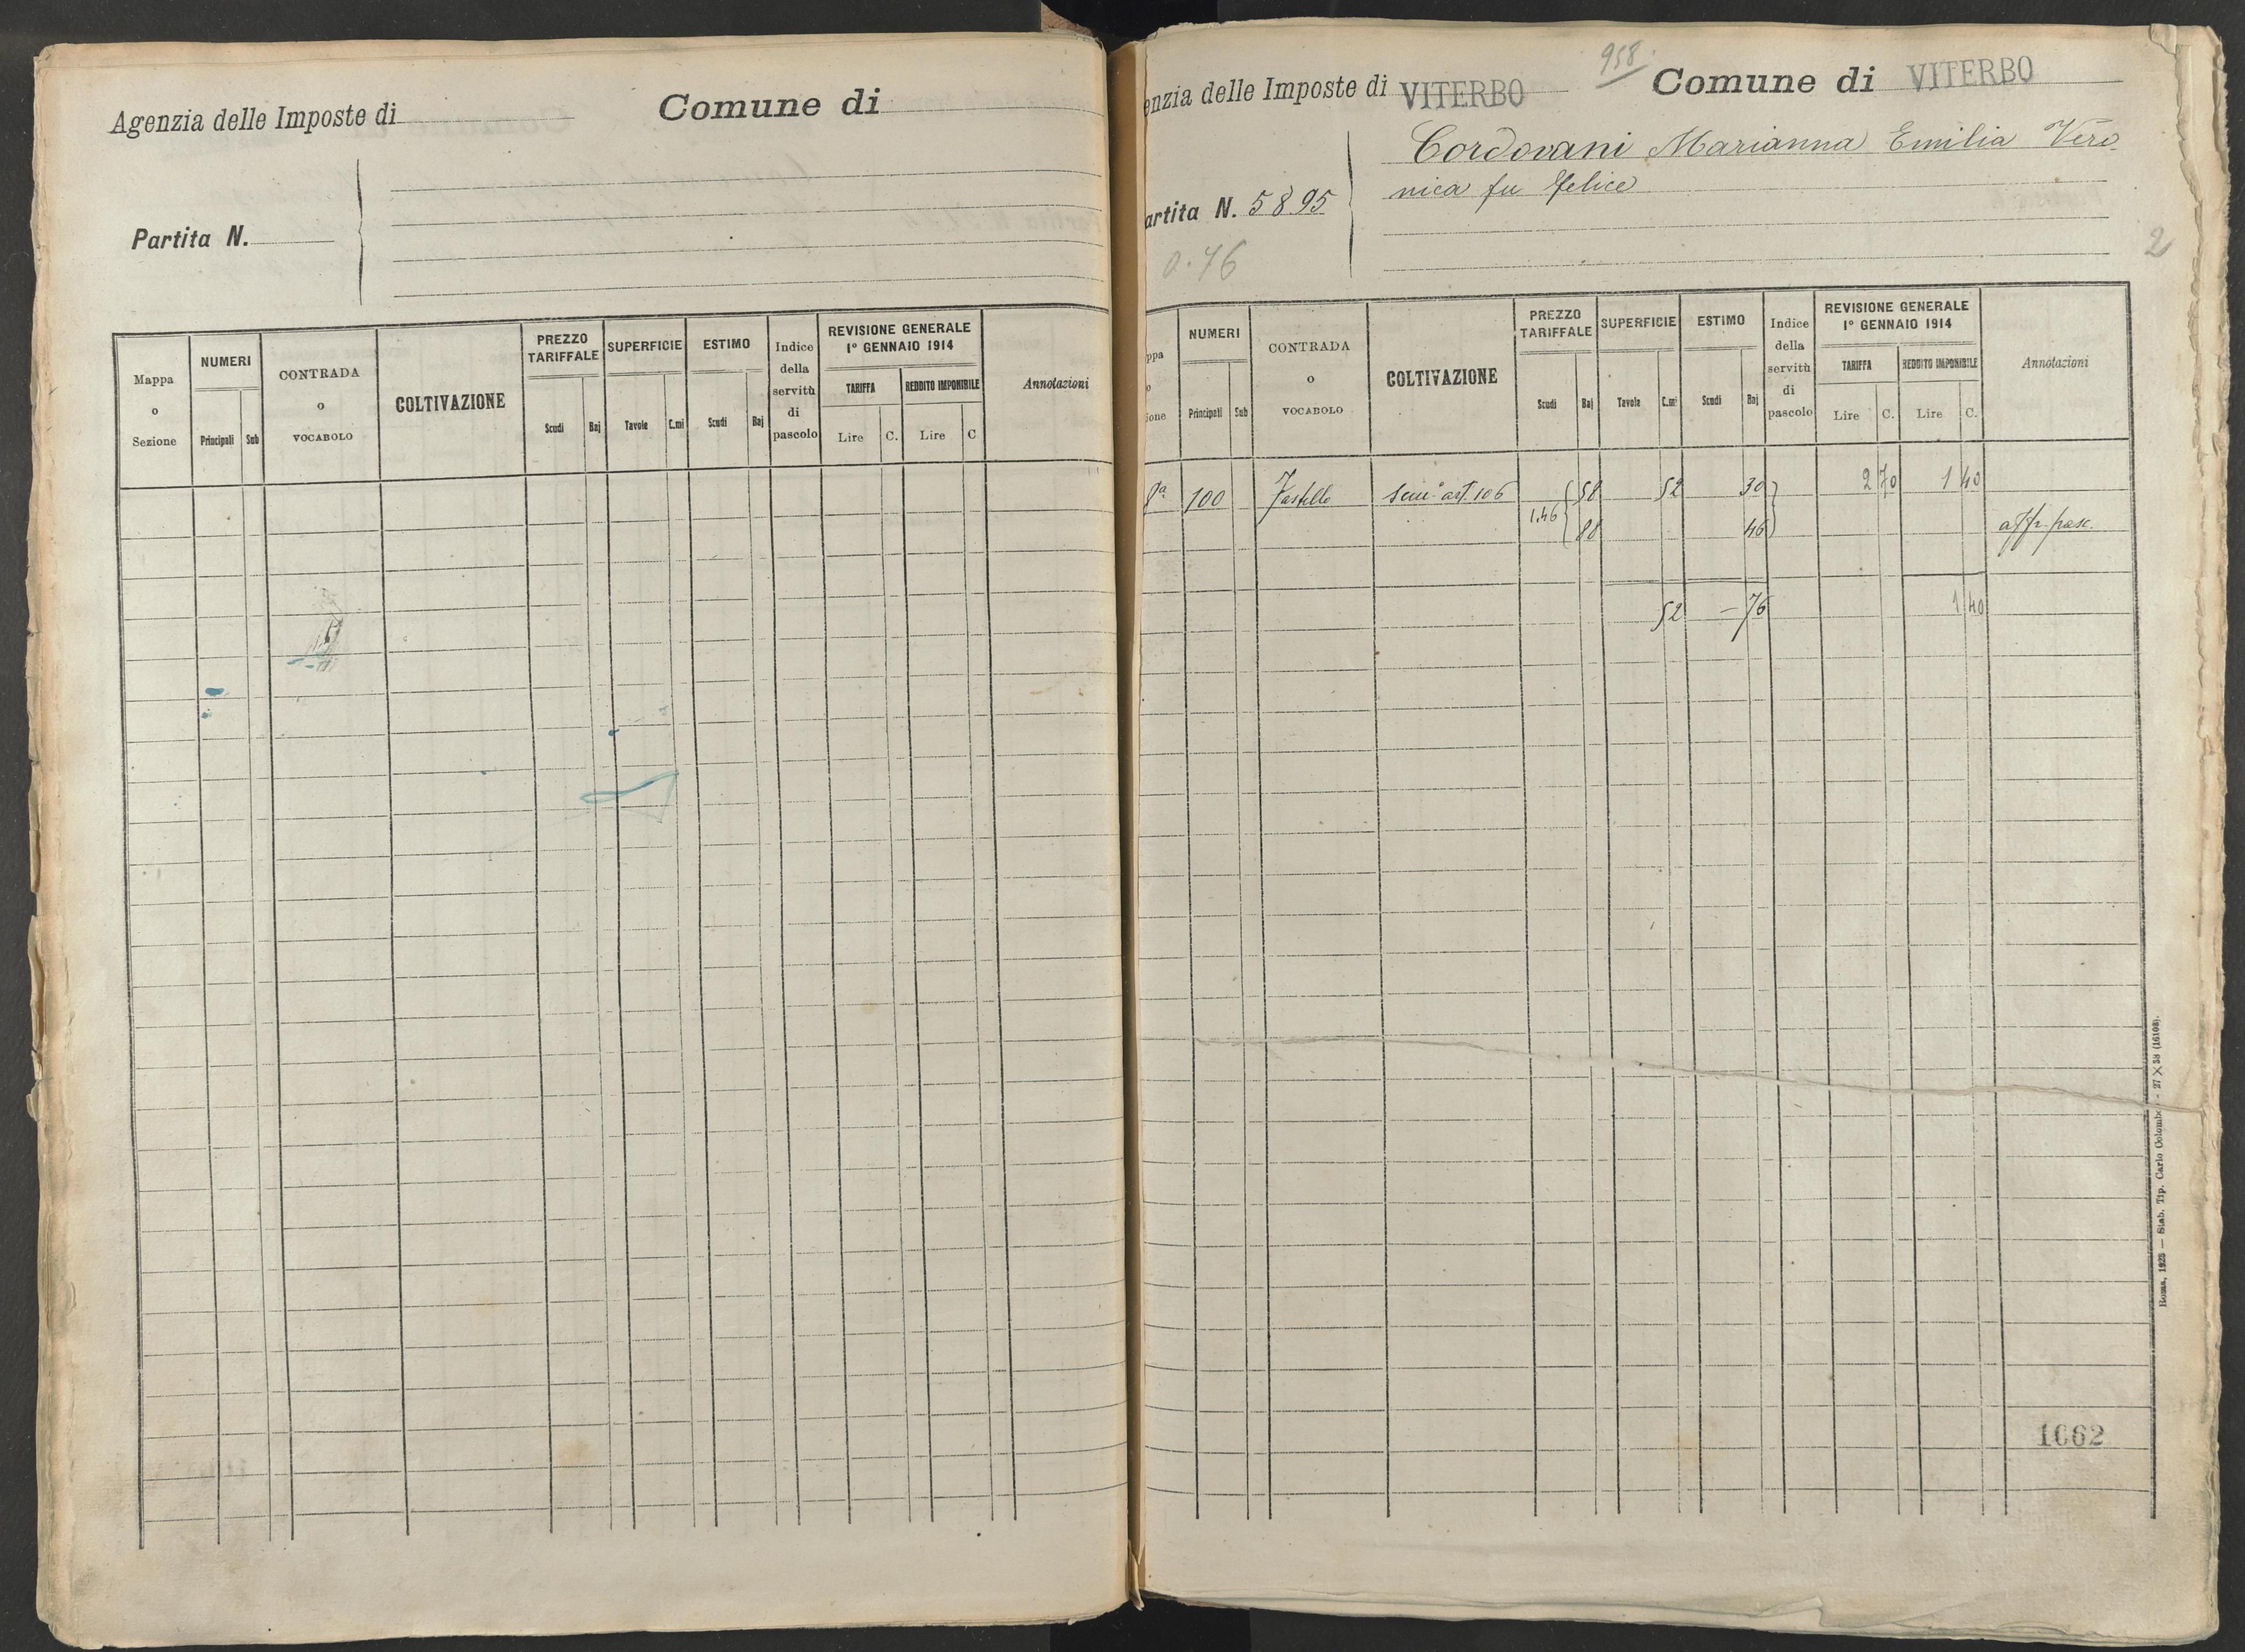 Agenzia delle Imposte di
Comune di
Partita N.
Mappa o Sezione
NUMERI
Principali
Sub
CONTRADA o VOCABOLO
COLTIVAZIONE
PREZZO TARIFFALE
Scudi
Baj
SUPERFICIE
Tavole
C.mi
ESTIMO
Scudi
Baj
Indice della servitù di pascolo
REVISIONE GENERALE
1° GENNAIO 1914
TARIFFA
Lire
C.
REDDITO IMPONIBILE
Lire
C
Annotazioni
958.
enzia delle Imposte di VITERBO
Comune di VITERBO
Cordovani Marianna Emilia Vero
nica fu Felice
artita N. 5895
0.76
2
ppa
o
ione
NUMERI
Principali
Sub
CONTRADA o VOCABOLO
COLTIVAZIONE
PREZZO TARIFFALE
Scudi
Baj
SUPERFICIE
Tavole
C.mi
ESTIMO
Scudi
Baj
Indice della servitù di pascolo
REVISIONE GENERALE
1° GENNAIO 1914
TARIFFA
Lire
C.
REDDITO IMPONIBILE
Lire
C.
Annotazioni
8a 100 art. 106 58 52 30 2 70 1 40
1.46 88 46 aff. pasc.
52 — 76 1 40
Roma, 1923 — Stab. Tip. Carlo Colombo - 27 X 38 (16103).
1062